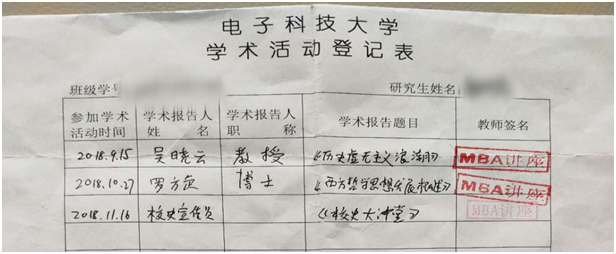 电子科技大学
学术活动登记表
班级学号 研究生姓名
参加学术活动时间 学术报告人姓名 学术报告人职称 学术报告题目 教师签名
2018.9.15 吴晓云 教授 《历史虚无主义浪潮》 MBA讲座
2018.10.27 罗方 博士 《西方哲学思想发展 》 MBA讲座
2018.11.16 校史宣传员 《校史大讲堂》 MBA讲座